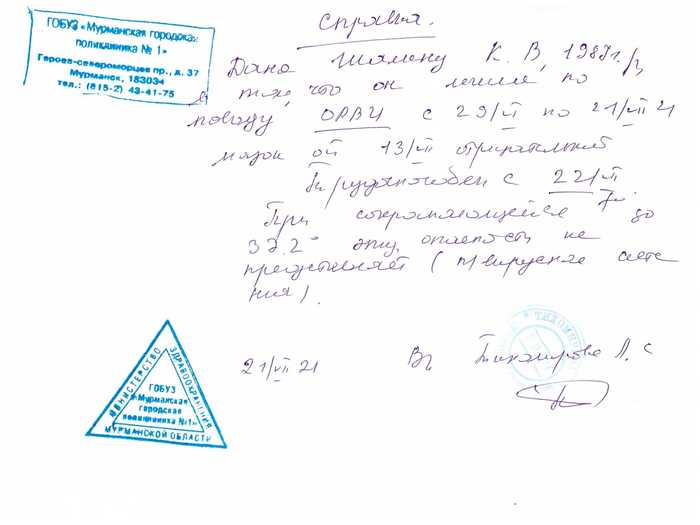 ГОБУЗ «Мурманская городская
поликлиника № 1»
Героев-североморцев пр., д. 37
Мурманск, 183034
тел.: (815-2) 43-41-75
Справка.
Дана К. В, 1987г./р
в том, что он лечился по
поводу ОРВИ с 29/VI по 21/VII 21
мазок от 13/VII отрицательный
Трудоспособен с 22/VII
При сохраняющейся до
37.2° опасность не
представляет (
ния).
МИНИСТЕРСТВО ЗДРАВООХРАНЕНИЯ
МУРМАНСКОЙ ОБЛАСТИ
ГОБУЗ
«Мурманская
городская
поликлиника №1»
21/VII 21 Вр Тихомирова Л. С